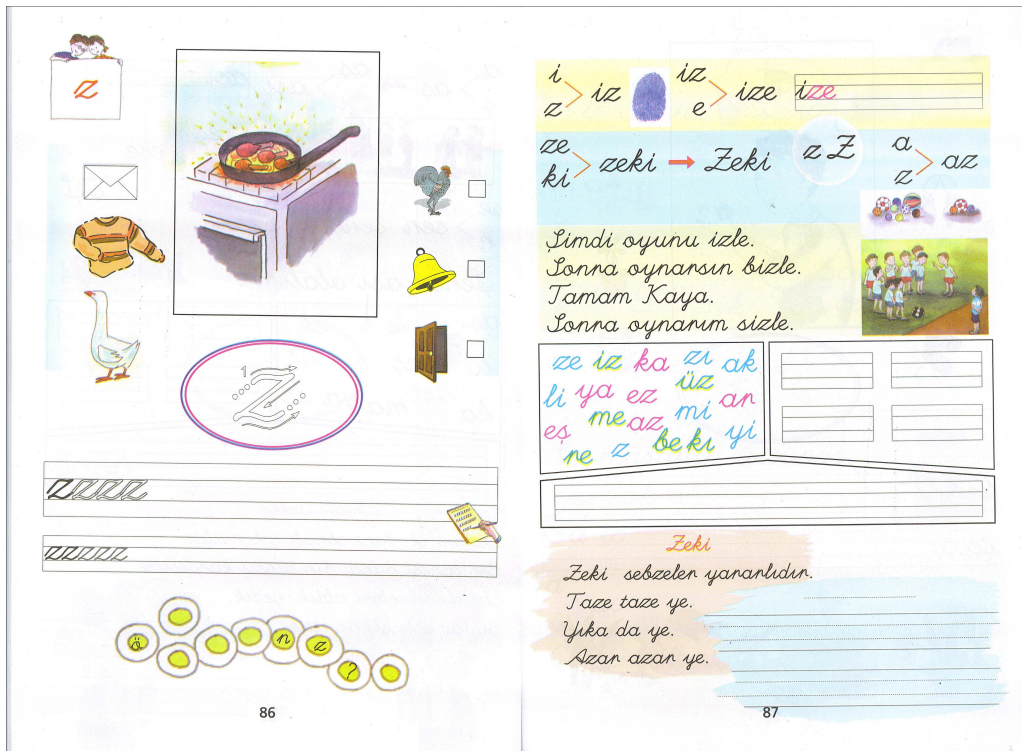 z
1
z
zzzzz
zzzzzz
ö
n
z
?
86
i
z
iz
iz
e
ize
ize
ze
ki
zeki
Zeki
z Z
a
z
az
Şimdi oyunu izle.
Sonra oynarsın bizle.
Tamam Kaya.
Sonra oynarım sizle.
ze iz ka zı ak
li ya ez üz ar
eş me az mi
re z be kı yi
Zeki
Zeki sebzeler yararlıdır.
Taze taze ye.
Yıka da ye.
Azar azar ye.
87